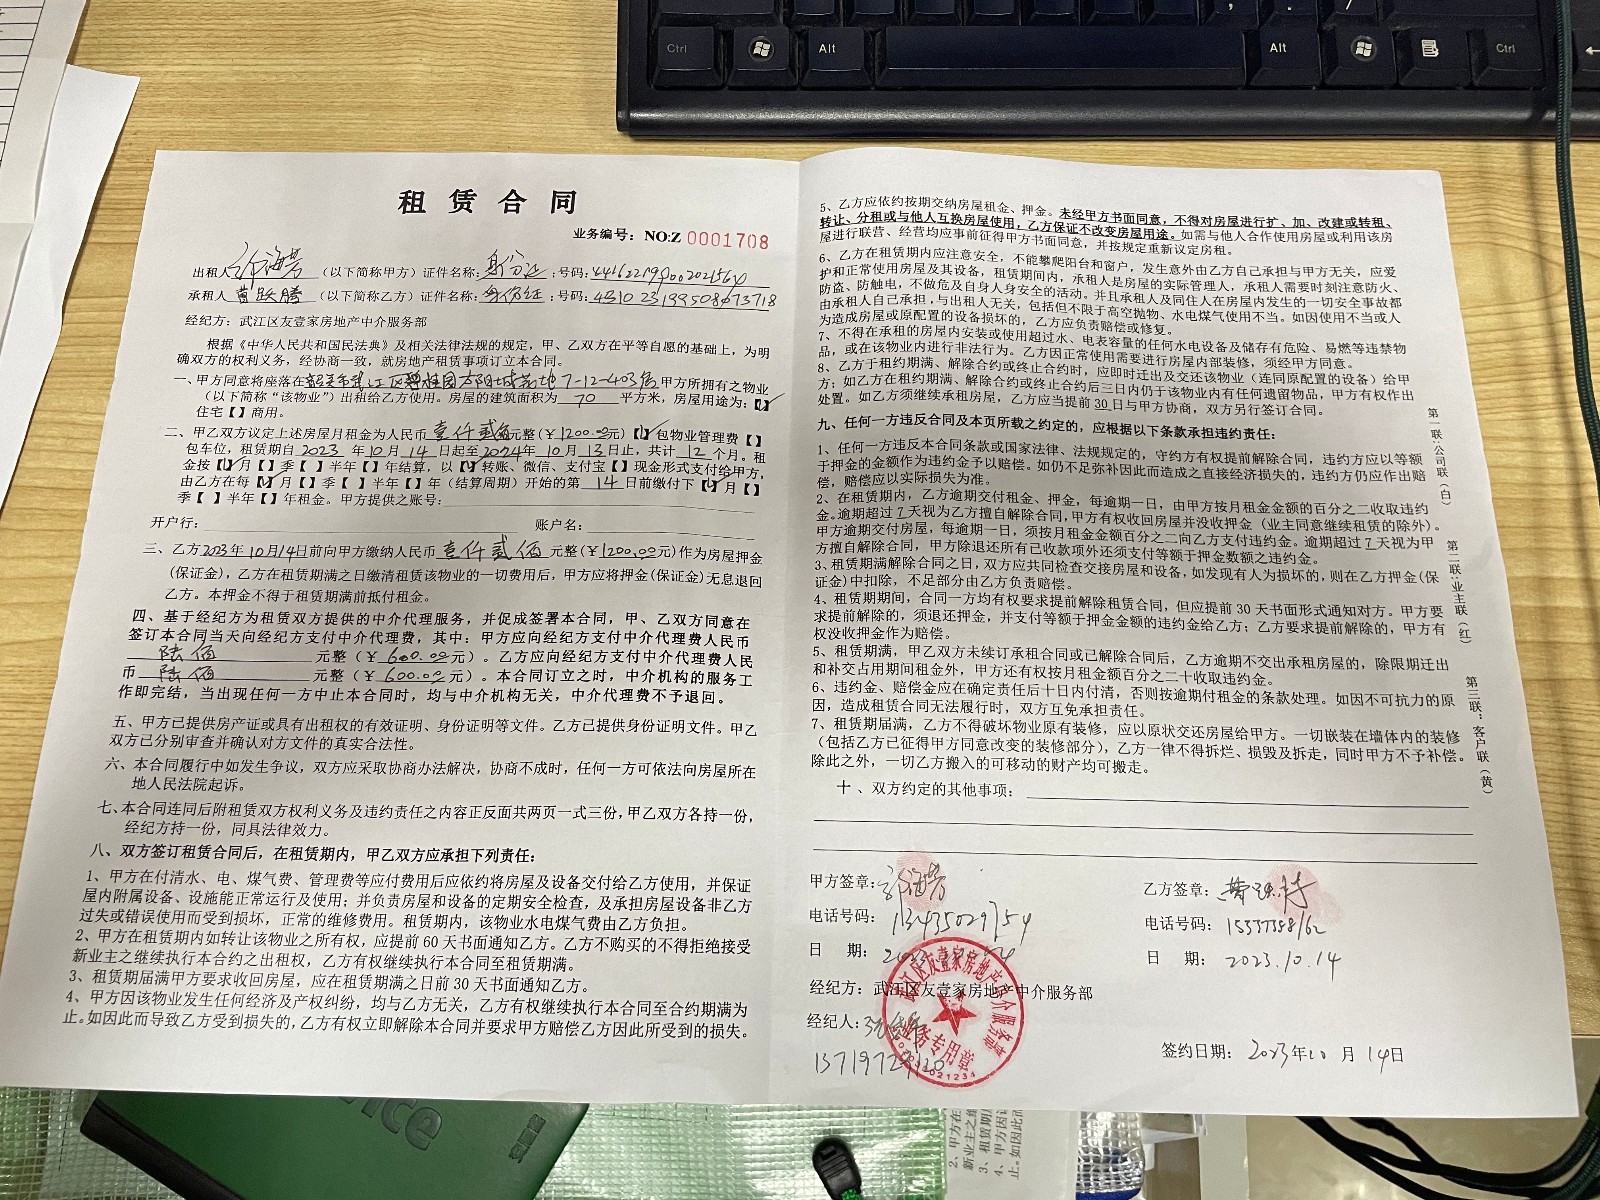 Ctrl
Alt
Alt
Ctrl
租 赁 合 同
业务编号：NO:Z 0001708
出租人 （以下简称甲方）证件名称：身份证；号码：
承租人 黄跃腾 （以下简称乙方）证件名称：身份证；号码：
经纪方：武江区友壹家房地产中介服务部
根据《中华人民共和国民法典》及相关法律法规的规定，甲、乙双方在平等自愿的基础上，为明
确双方的权利义务，经协商一致，就房地产租赁事项订立本合同。
一、甲方同意将座落在韶关市武江区碧桂园太阳城花地7-12-403房甲方所拥有之物业
（以下简称“该物业”）出租给乙方使用。房屋的建筑面积为 70 平方米，房屋用途为：【✓】
住宅【 】商用。
二、甲乙双方议定上述房屋月租金为人民币 壹仟贰佰元整（￥1200.00元）【✓】包物业管理费【 】
包车位，租赁期自2023 年10 月 14 日起至2024年 10 月 13 日止，共计 12 个月。租
金按【✓】月【 】季【 】半年【 】年结算，以【✓】转账、微信、支付宝【 】现金形式支付给甲方，
由乙方在每【✓】月【 】季【 】半年【 】年（结算周期）开始的第 14 日前缴付下【✓】月【 】
季【 】半年【 】年租金。甲方提供之账号：
开户行： 账户名：
三、乙方2023年10月14日前向甲方缴纳人民币 壹仟贰佰 元整（￥1200.00元）作为房屋押金
（保证金），乙方在租赁期满之日缴清租赁该物业的一切费用后，甲方应将押金（保证金）无息退回
乙方。本押金不得于租赁期满前抵付租金。
四、基于经纪方为租赁双方提供的中介代理服务，并促成签署本合同，甲、乙双方同意在
签订本合同当天向经纪方支付中介代理费，其中：甲方应向经纪方支付中介代理费人民币
陆佰 元整（￥600.00元）。乙方应向经纪方支付中介代理费人民
币 陆佰 元整（￥600.00元）。本合同订立之时，中介机构的服务工
作即完结，当出现任何一方中止本合同时，均与中介机构无关，中介代理费不予退回。
五、甲方已提供房产证或具有出租权的有效证明、身份证明等文件。乙方已提供身份证明文件。甲乙
双方已分别审查并确认对方文件的真实合法性。
六、本合同履行中如发生争议，双方应采取协商办法解决，协商不成时，任何一方可依法向房屋所在
地人民法院起诉。
七、本合同连同后附租赁双方权利义务及违约责任之内容正反面共两页一式三份，甲乙双方各持一份，
经纪方持一份，同具法律效力。
八、双方签订租赁合同后，在租赁期内，甲乙双方应承担下列责任：
1、甲方在付清水、电、煤气费、管理费等应付费用后应依约将房屋及设备交付给乙方使用，并保证
屋内附属设备、设施能正常运行及使用；并负责房屋和设备的定期安全检查，及承担房屋设备非乙方
过失或错误使用而受到损坏，正常的维修费用。租赁期内，该物业水电煤气费由乙方负担。
2、甲方在租赁期内如转让该物业之所有权，应提前60天书面通知乙方。乙方不购买的不得拒绝接受
新业主之继续执行本合约之出租权，乙方有权继续执行本合同至租赁期满。
3、租赁期届满甲方要求收回房屋，应在租赁期满之日前30天书面通知乙方。
4、甲方因该物业发生任何经济及产权纠纷，均与乙方无关，乙方有权继续执行本合同至合约期满为
止。如因此而导致乙方受到损失的，乙方有权立即解除本合同并要求甲方赔偿乙方因此所受到的损失。
5、乙方应依约按期交纳房屋租金、押金。未经甲方书面同意，不得对房屋进行扩、加、改建或转租、
转让、分租或与他人互换房屋使用，乙方保证不改变房屋用途。如需与他人合作使用房屋或利用该房
屋进行联营、经营均应事前征得甲方书面同意，并按规定重新议定房租。
6、乙方在租赁期内应注意安全，不能攀爬阳台和窗户，发生意外由乙方自己承担与甲方无关，应爱
护和正常使用房屋及其设备，租赁期间内，承租人是房屋的实际管理人，承租人需要时刻注意防火、
防盗、防触电，不做危及自身人身安全的活动。并且承租人及同住人在房屋内发生的一切安全事故都
由承租人自己承担，与出租人无关，包括但不限于高空抛物、水电煤气使用不当。如因使用不当或人
为造成房屋或原配置的设备损坏的，乙方应负责赔偿或修复。
7、不得在承租的房屋内安装或使用超过水、电表容量的任何水电设备及储存有危险、易燃等违禁物
品，或在该物业内进行非法行为。乙方因正常使用需要进行房屋内部装修，须经甲方同意。
8、乙方于租约期满、解除合约或终止合约时，应即时迁出及交还该物业（连同原配置的设备）给甲
方；如乙方在租约期满、解除合约或终止合约后三日内仍于该物业内有任何遗留物品，甲方有权作出
处置。如乙方须继续承租房屋，乙方应当提前30日与甲方协商，双方另行签订合同。
九、任何一方违反合同及本页所载之约定的，应根据以下条款承担违约责任：
1、任何一方违反本合同条款或国家法律、法规规定的，守约方有权提前解除合同，违约方应以等额
于押金的金额作为违约金予以赔偿。如仍不足弥补因此而造成之直接经济损失的，违约方仍应作出赔
偿，赔偿应以实际损失为准。
2、在租赁期内，乙方逾期交付租金、押金，每逾期一日，由甲方按月租金金额的百分之二收取违约
金。逾期超过7天视为乙方擅自解除合同，甲方有权收回房屋并没收押金（业主同意继续租赁的除外）。
甲方逾期交付房屋，每逾期一日，须按月租金金额百分之二向乙方支付违约金。逾期超过7天视为甲
方擅自解除合同，甲方除退还所有已收款项外还须支付等额于押金数额之违约金。
3、租赁期满解除合同之日，双方应共同检查交接房屋和设备，如发现有人为损坏的，则在乙方押金（保
证金）中扣除，不足部分由乙方负责赔偿。
4、租赁期期间，合同一方均有权要求提前解除租赁合同，但应提前30天书面形式通知对方。甲方要
求提前解除的，须退还押金，并支付等额于押金金额的违约金给乙方；乙方要求提前解除的，甲方有
权没收押金作为赔偿。
5、租赁期满，甲乙双方未续订承租合同或已解除合同后，乙方逾期不交出承租房屋的，除限期迁出
和补交占用期间租金外，甲方还有权按月租金额百分之二十收取违约金。
6、违约金、赔偿金应在确定责任后十日内付清，否则按逾期付租金的条款处理。如因不可抗力的原
因，造成租赁合同无法履行时，双方互免承担责任。
7、租赁期届满，乙方不得破坏物业原有装修，应以原状交还房屋给甲方。一切嵌装在墙体内的装修
（包括乙方已征得甲方同意改变的装修部分），乙方一律不得拆烂、损毁及拆走，同时甲方不予补偿。
除此之外，一切乙方搬入的可移动的财产均可搬走。
十、双方约定的其他事项：
甲方签章：
电话号码：13435029754
日 期：
经纪方：武江区友壹家房地产中介服务部
经纪人：
乙方签章：
电话号码：
日 期：2023.10.14
签约日期：2023年10月14日
武江区友壹家房地产中介服务部
业务专用章
第一联：公司联（白）
第二联：业主联（红）
第三联：客户联（黄）